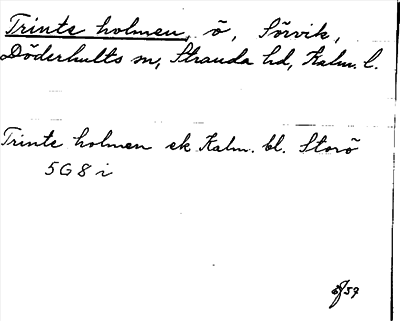 Trinte holmen, ö, Sörvik,
Döderhults sn, Stranda hd, Kalm. l.
Trinte holmen ek Kalm. bl. Storö
5G8i
59